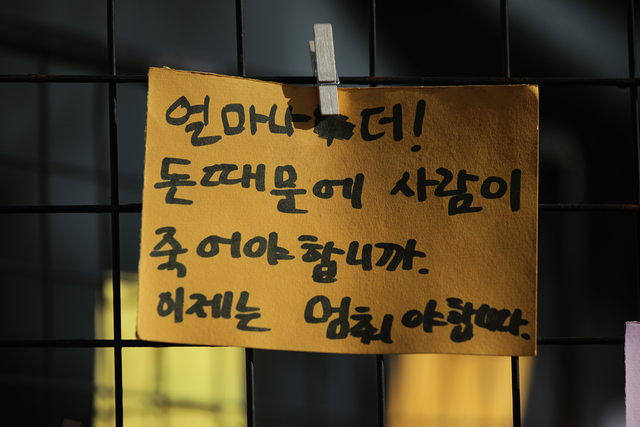 얼마나 더!
돈때문에 사람이
죽어야합니까.
이제는 멈춰야합니다.